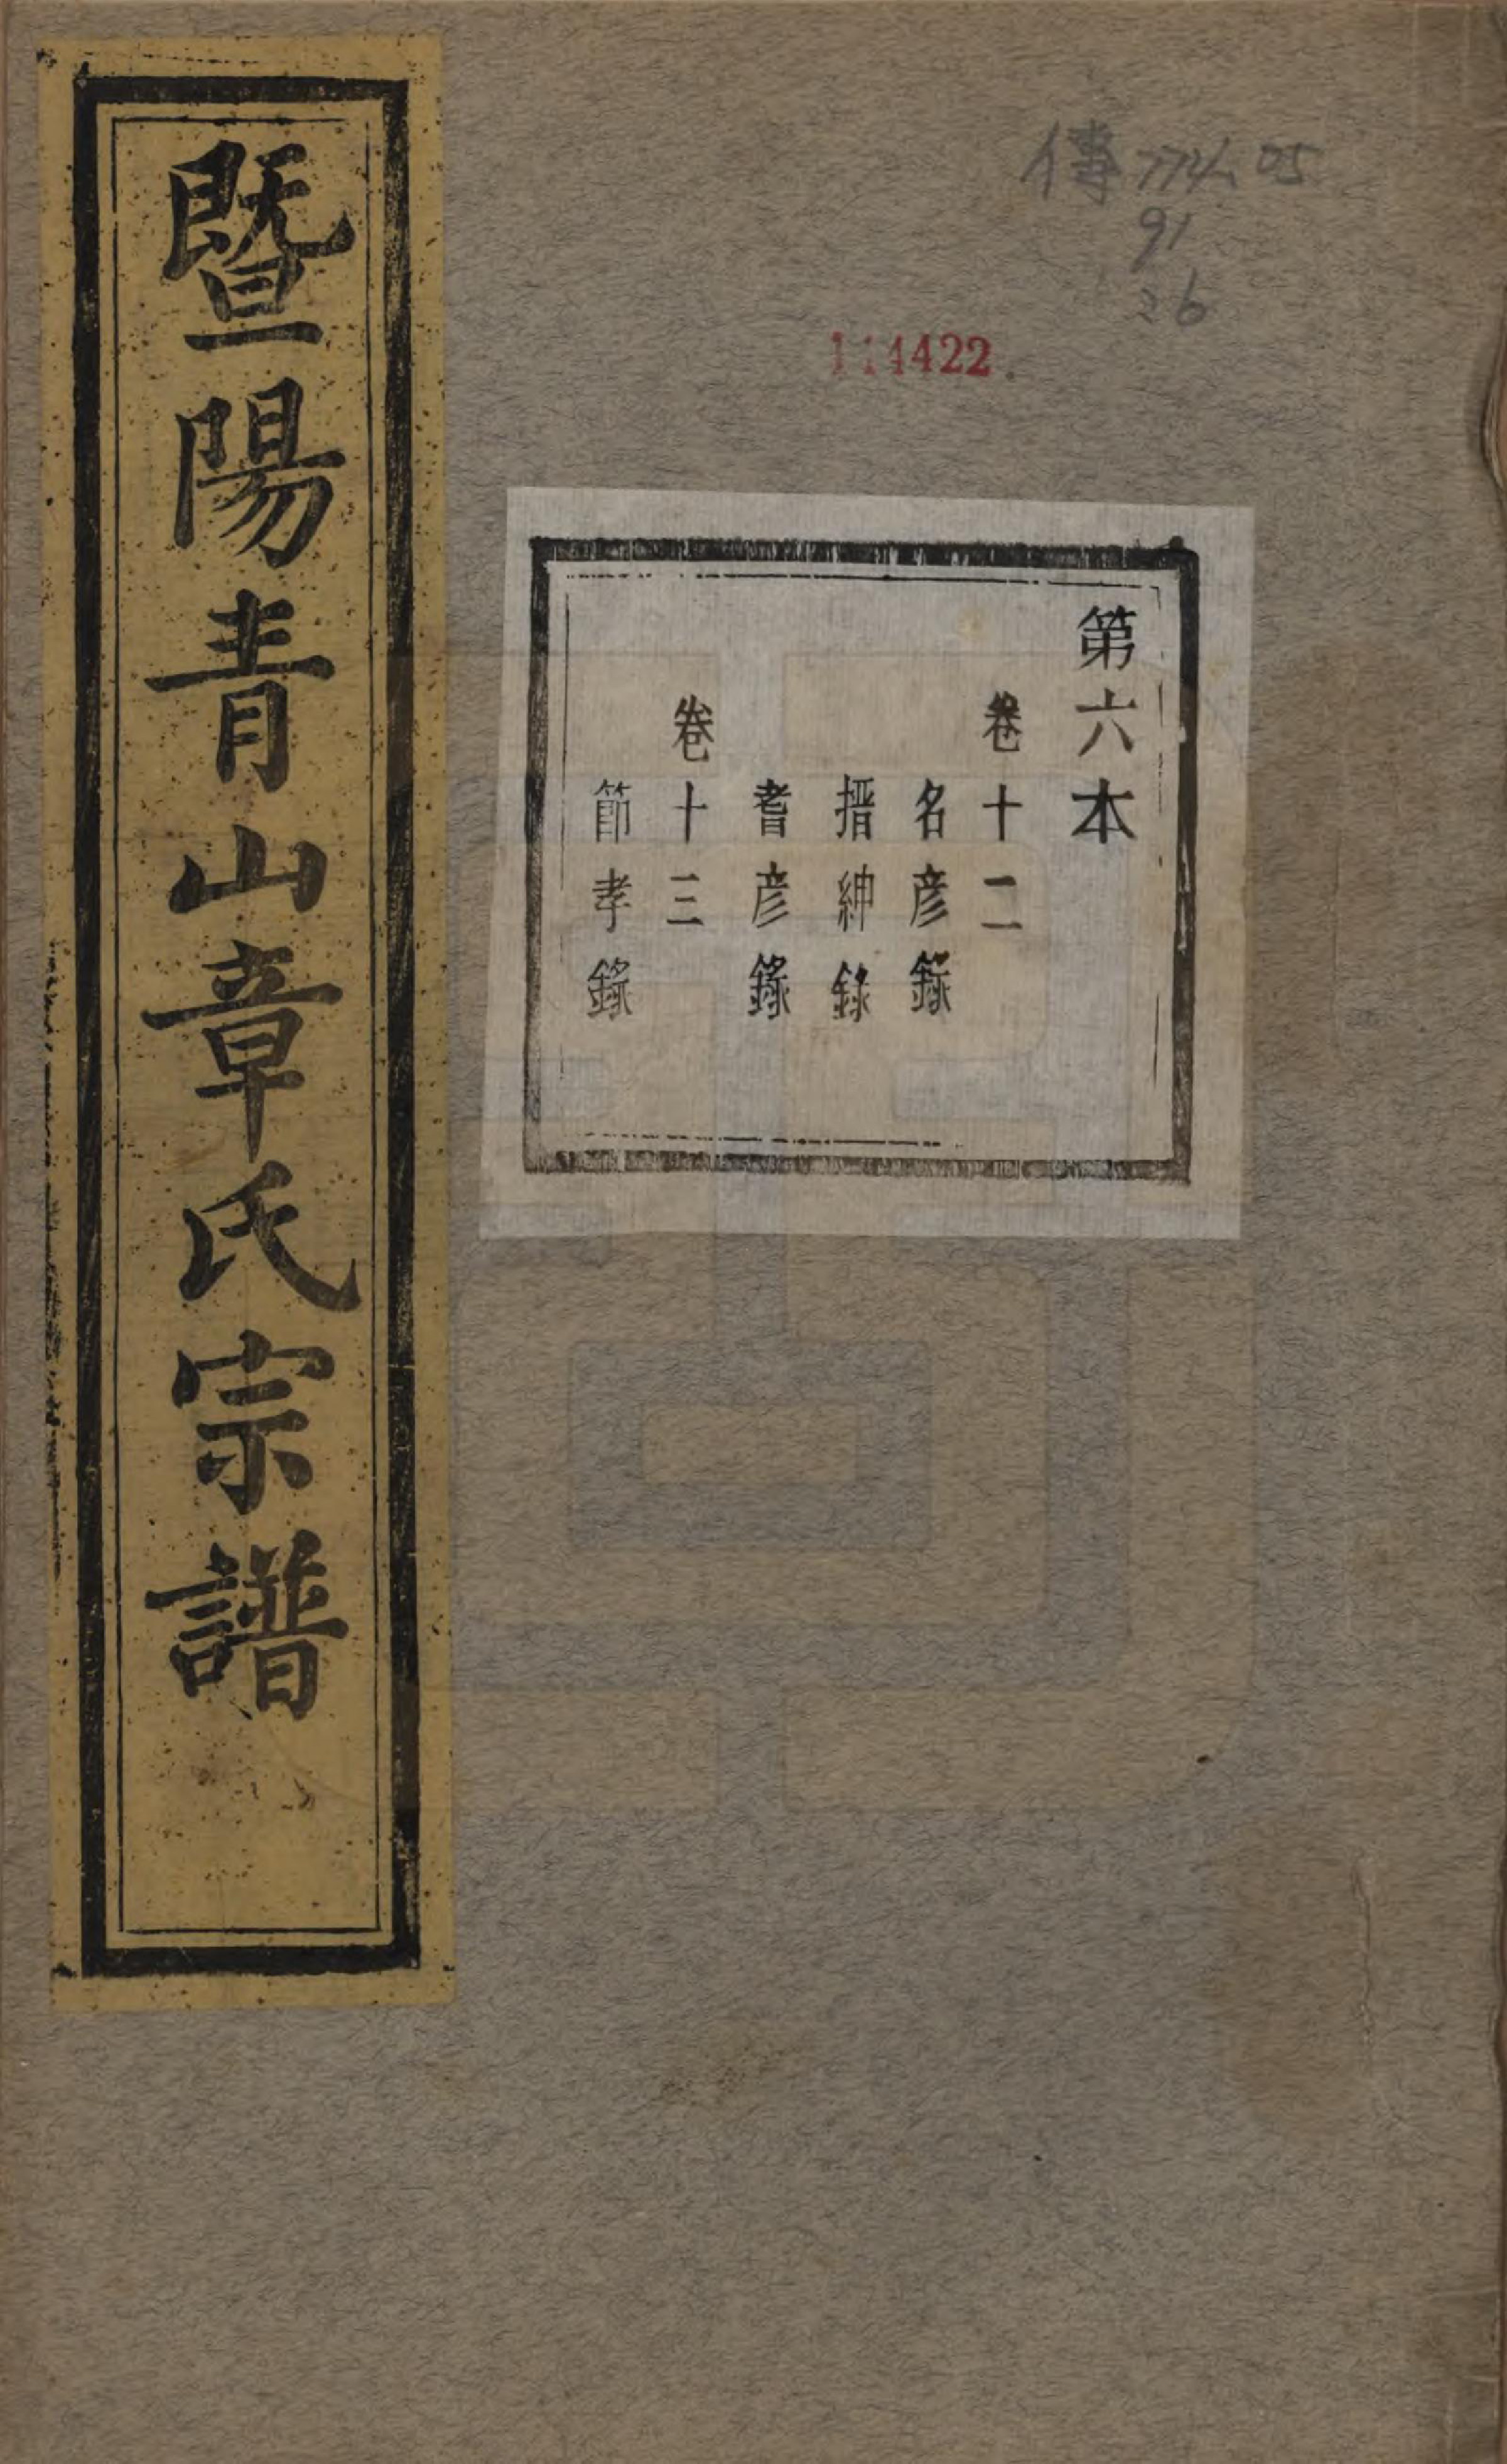 暨陽青山章氏宗譜
傳 774.05
91
26
114422
第六本
卷十二
名彦錄
搢紳錄
耆彦錄
卷十三
節孝錄